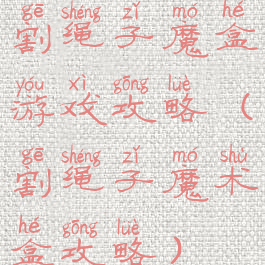 gē shéng zǐ mó hé
割绳子魔盒
yóu xì gōng lüè
游戏攻略(
gē shéng zǐ mó shù
割绳子魔术
hé gōng lüè
盒攻略)